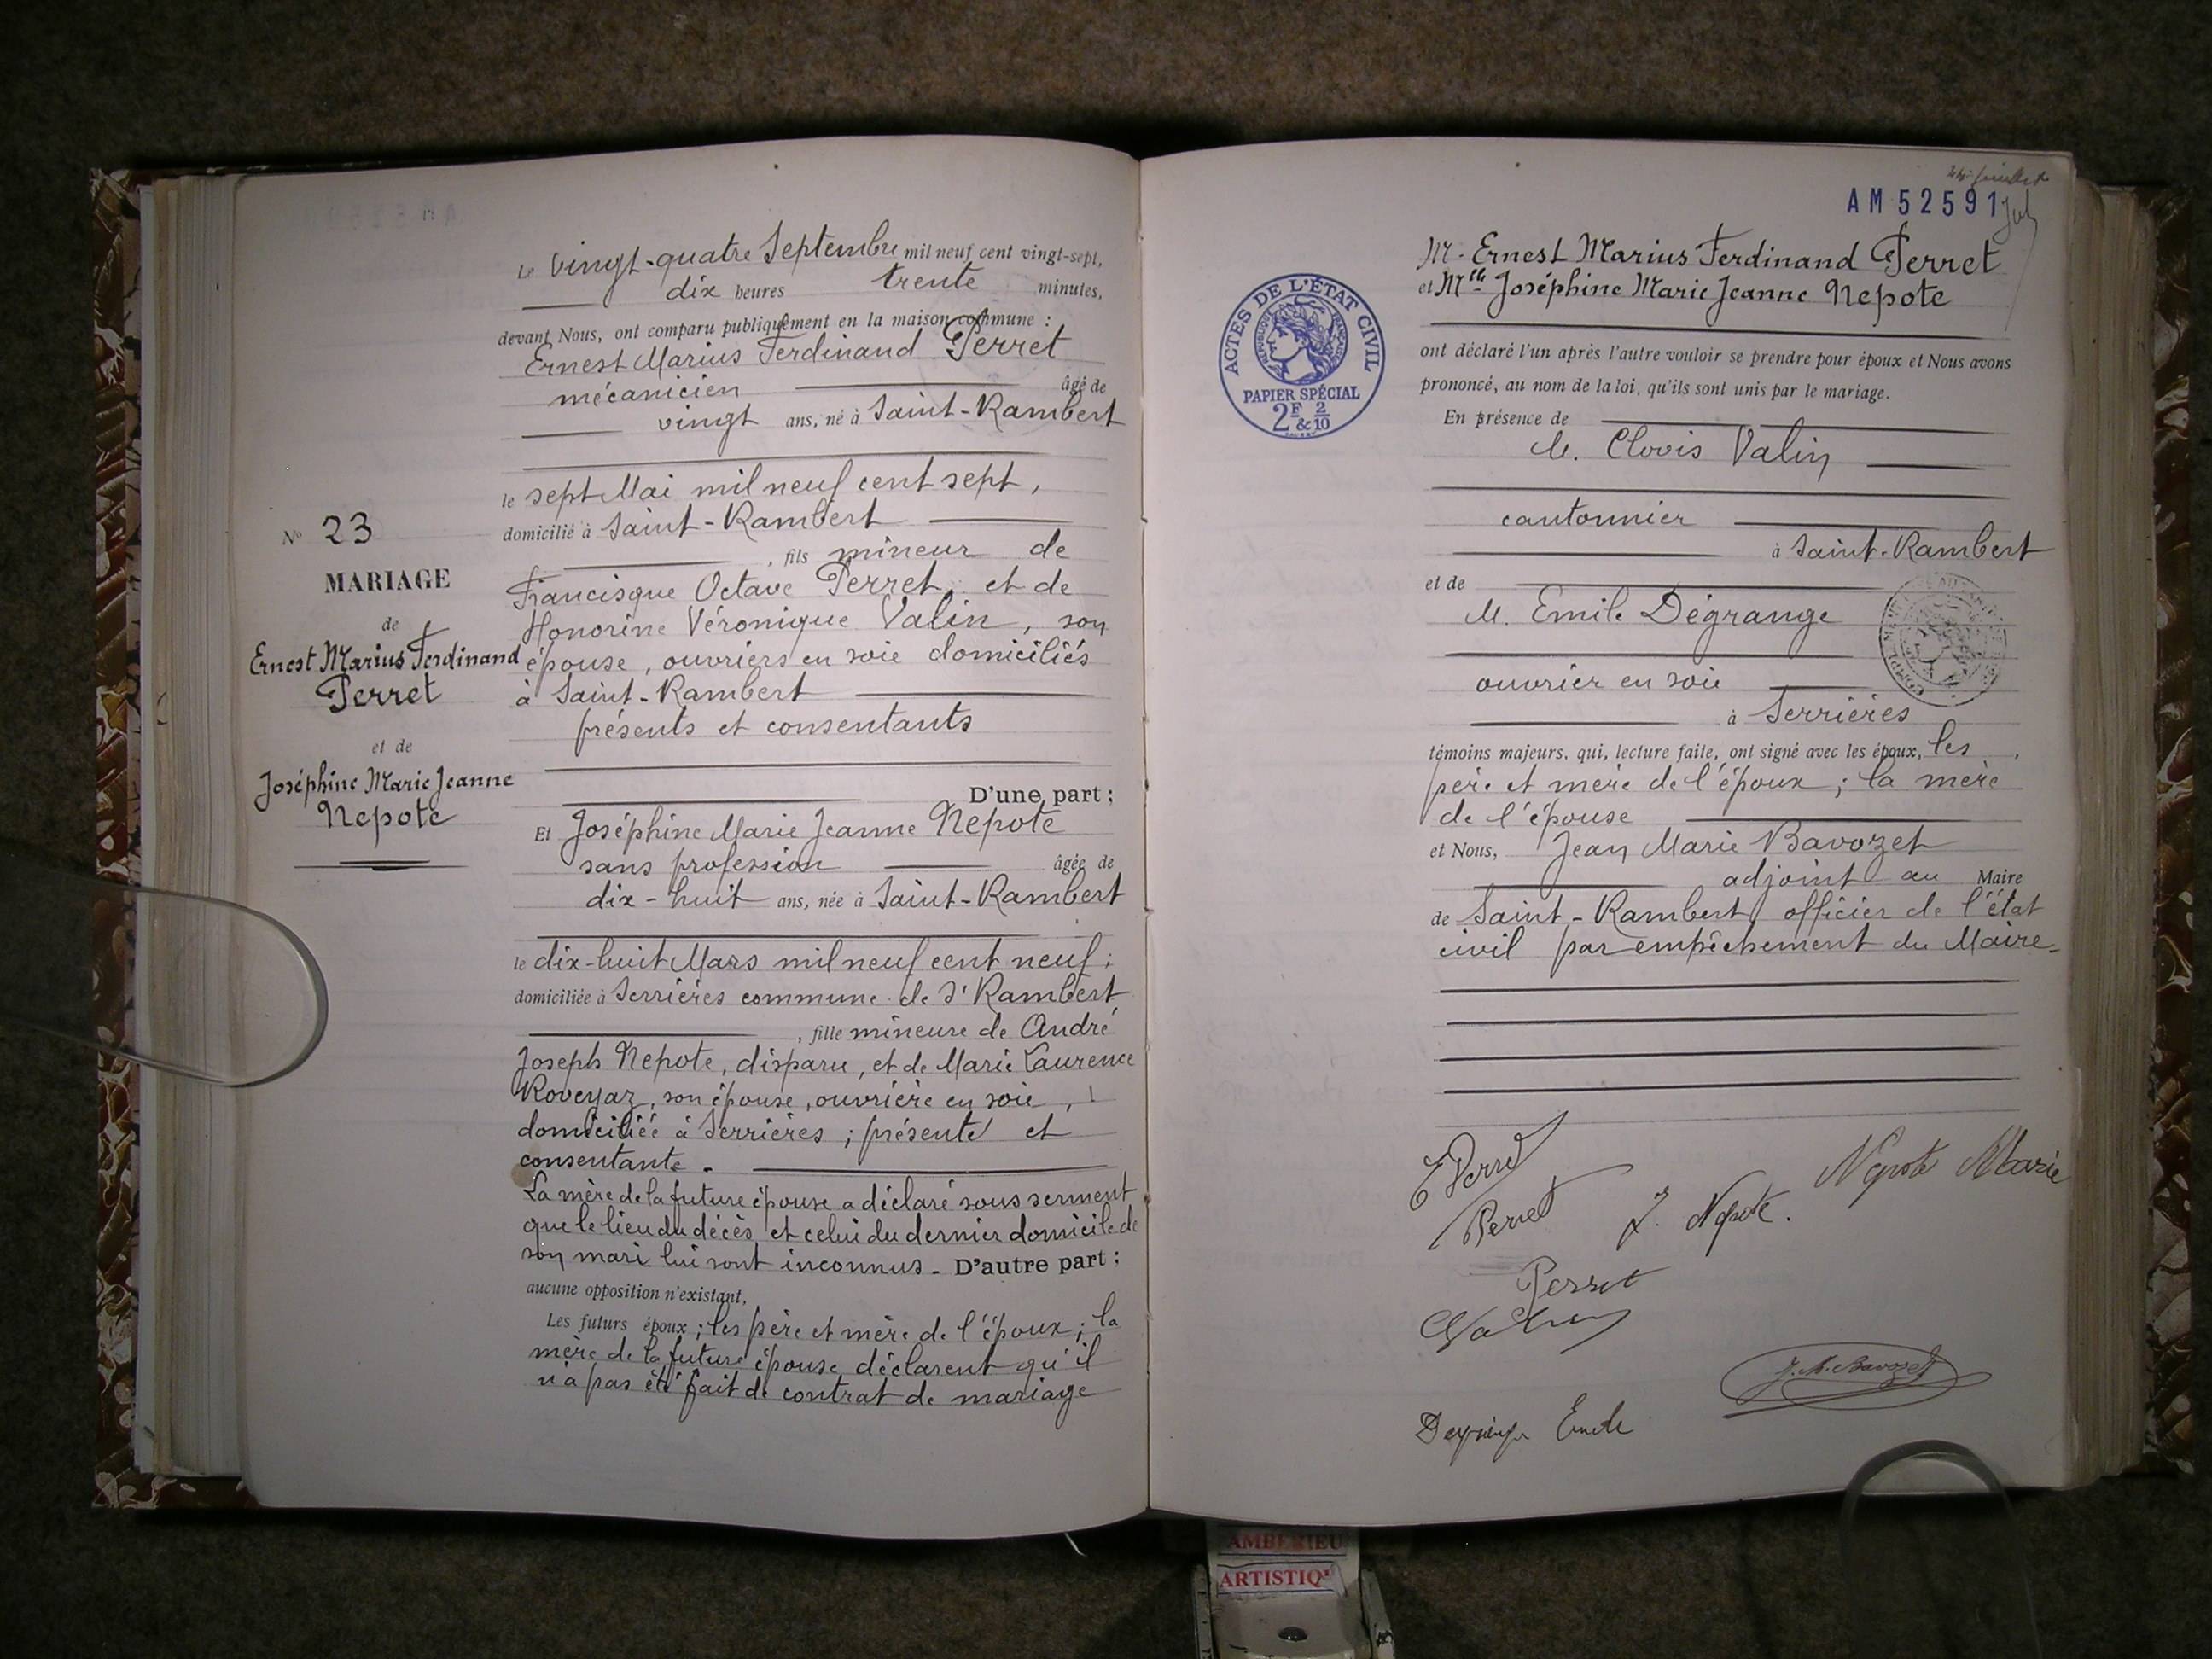 Le vingt-quatre Septembre mil neuf cent vingt-sept,
dix heures trente minutes,
devant Nous, ont comparu publiquement en la maison commune :
Ernest Marius Ferdinand Perret
mécanicien âgé de
vingt ans, né à Saint-Rambert
le sept Mai mil neuf cent sept,
domicilié à Saint-Rambert
, fils mineur de
Francisque Octave Perret, et de
Honorine Véronique Valin, son
épouse, ouvriers en soie domiciliés
à Saint-Rambert
présents et consentants
D'une part ;
Et Joséphine Marie Jeanne Nepote
sans profession âgée de
dix-huit ans, née à Saint-Rambert
le dix-huit Mars mil neuf cent neuf ;
domiciliée à Serrières commune de St Rambert
, fille mineure de André
Joseph Nepote, disparu, et de Marie Laurence
Roveyaz, son épouse, ouvrière en soie,
domiciliée à Serrières ; présente et
consentante.
La mère de la future épouse a déclaré sous serment
que le lieu du décès et celui du dernier domicile de
son mari lui sont inconnus. D'autre part ;
aucune opposition n'existant,
Les futurs époux ; les père et mère de l'époux ; la
mère de la future épouse déclarent qu'il
n'a pas été fait de contrat de mariage
N° 23
MARIAGE
de
Ernest Marius Ferdinand
Perret
et de
Joséphine Marie Jeanne
Nepote
AM 52591
M. Ernest Marius Ferdinand Perret
et Mlle Joséphine Marie Jeanne Nepote
ont déclaré l'un après l'autre vouloir se prendre pour époux et Nous avons
prononcé, au nom de la loi, qu'ils sont unis par le mariage.
En présence de
M. Clovis Valin
cantonnier
à Saint-Rambert
et de
M. Emile Dégrange
ouvrier en soie
à Serrières
témoins majeurs, qui, lecture faite, ont signé avec les époux, les
père et mère de l'époux ; la mère
de l'épouse
et Nous, Jean Marie Bavozet
adjoint au Maire
de Saint-Rambert officier de l'état
civil par empêchement du Maire
ACTES DE L'ÉTAT CIVIL
RÉPUBLIQUE FRANÇAISE
PAPIER SPÉCIAL
2F & 2/10
E Perret
Perret
J. Nepote.
Nepote Marie
Perret
J. M. Bavozet
Emile
AMBERIEU
ARTISTIQ